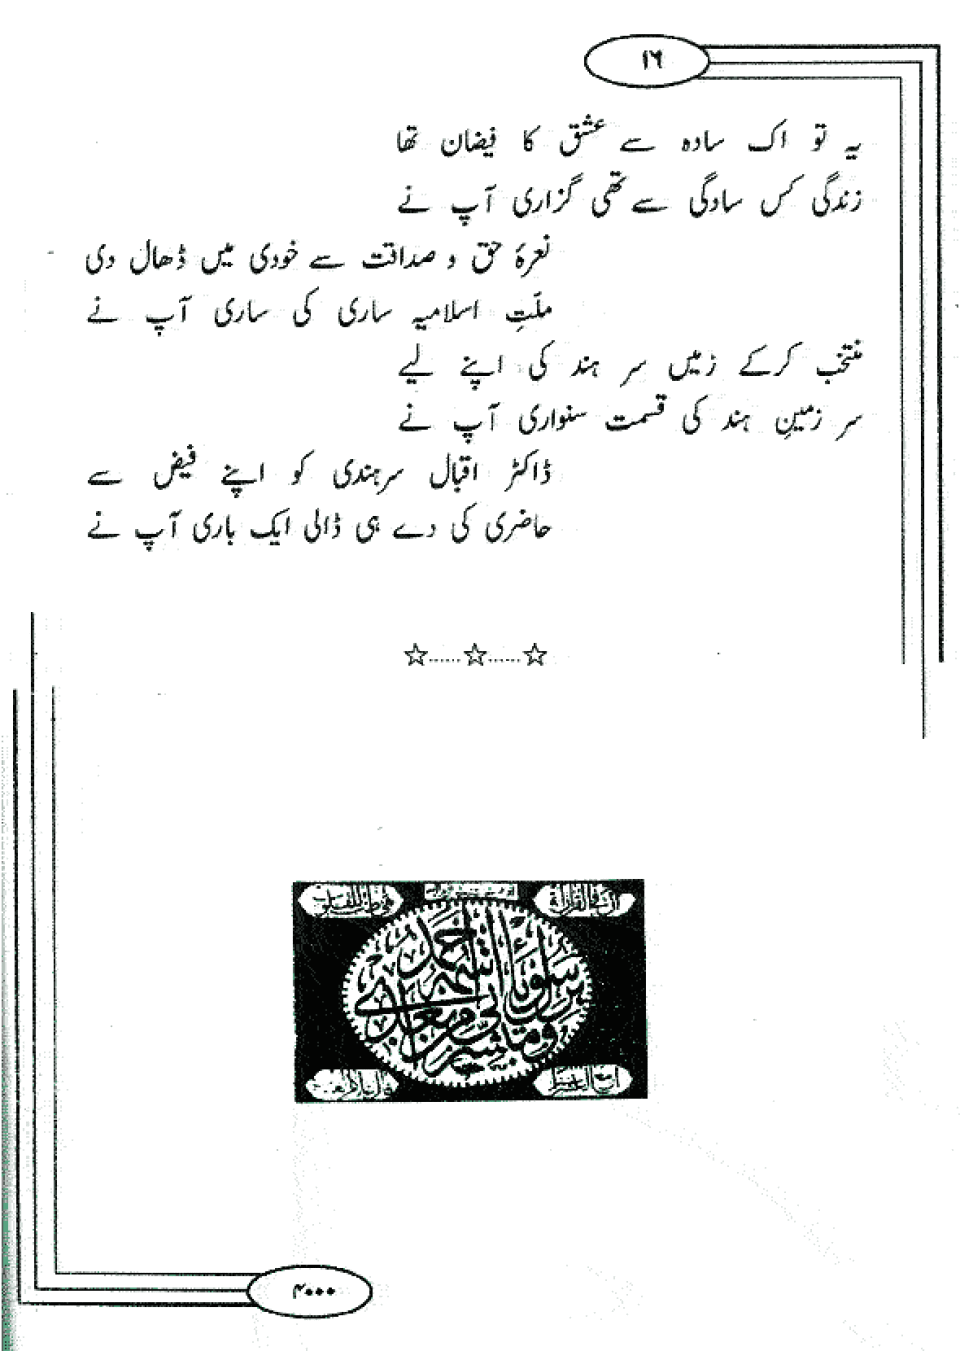 ۱۶
یہ تو اک سادہ سے عشق کا فیضان تھا
زندگی کس سادگی سے تھی گزاری آپ نے
نعرۂ حق و صداقت سے خودی میں ڈھال دی
ملّتِ اسلامیہ ساری کی ساری آپ نے
منتخب کرکے زمیں سر ہند کی اپنے لیے
سر زمینِ ہند کی قسمت سنواری آپ نے
ڈاکٹر اقبال سرہندی کو اپنے فیض سے
حاضری کی دے ہی ڈالی ایک باری آپ نے
☆......☆......☆
ومبشرا برسول یأتی من بعدی اسمہ احمد
۲۰۰۰